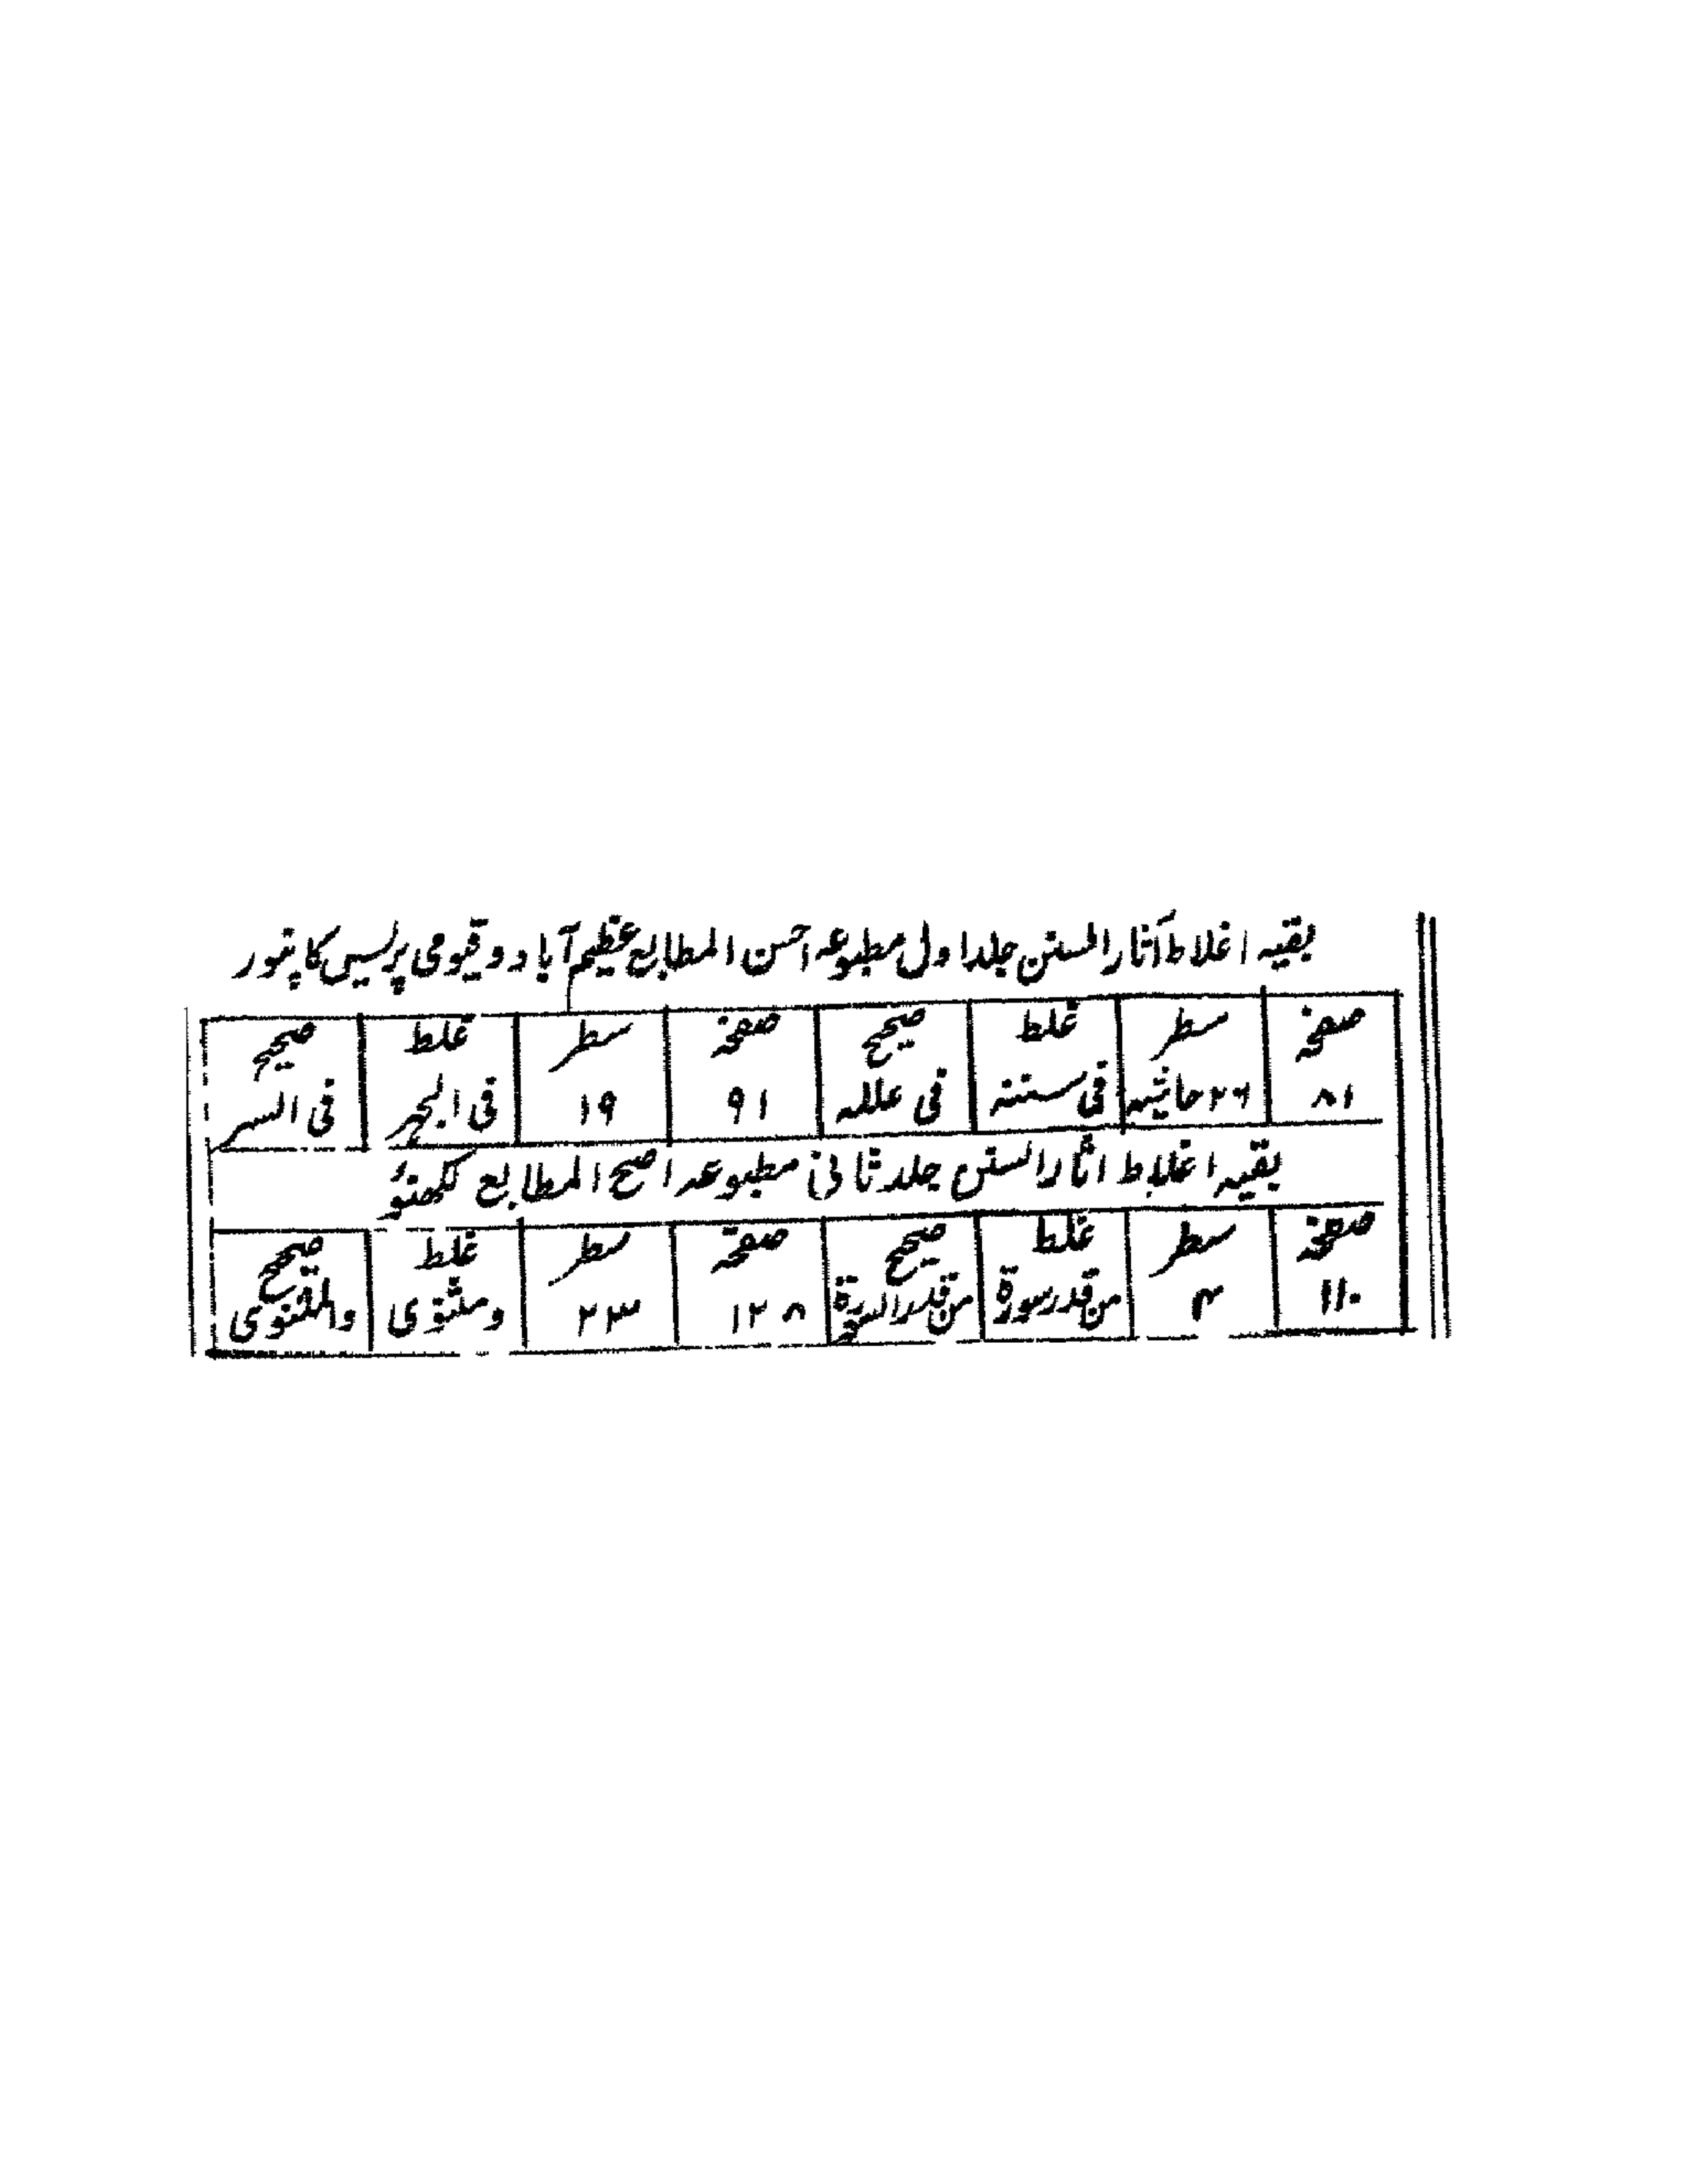 بقیہ اغلاط آثار السنن جلد اول مطبوعہ احسن المطابع عظیم آباد و قیومی پریس کانپور
صفحہ سطر غلط صحیح صفحہ سطر غلط صحیح
۸۱ ۲۶ حاشیہ فی سننہ فی عللہ ۹۱ ۱۹ فی الجہر فی السر
بقیہ اغلاط اثار السنن جلد ثانی مطبوعہ اصح المطابع لکھنؤ
صفحہ سطر غلط صحیح صفحہ سطر غلط صحیح
۱۱۰ ۴ من قدر سورة من قدر السورة ۱۲۸ ۲۳ ومثنوی والمثنوی